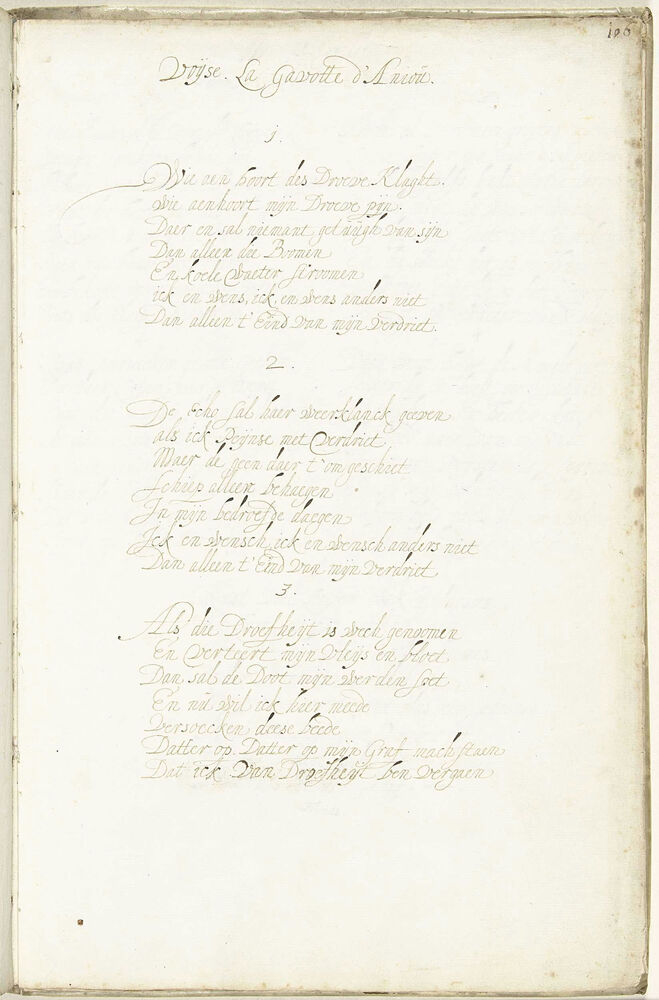 106
Voyse. La Gavotte d'Aniou.
1.
Wie aen hoort des Droeve Klaght.
wie aenhoort mijn Droeve pijn.
Daer en sal niemant getuijgh van sijn
Dan alleen die Boomen
En koele waeter stroomen
ick en wens, ick en wens anders niet
Dan alleen t' Eind van mijn verdriet.
2.
De Echo sal haer weerklanck geeven
als ick Peijnse met verdriet
Maer de geen daer t' om geschiet
Schiep alleen behaegen
In mijn bedroefde daegen
Ick en wensch, ick en wensch anders niet
Dan alleen t' Eind van mijn verdriet
3.
Als die Droefheijt is wech genoomen
En verteert mijn vleijs en bloet
Dan sal de Doot mijn werden soet
En nu wil ick hier meede
versoecken deese beede
Datter op Datter op mijn Graf mach staen
Dat ick van Droefheijt ben vergaen